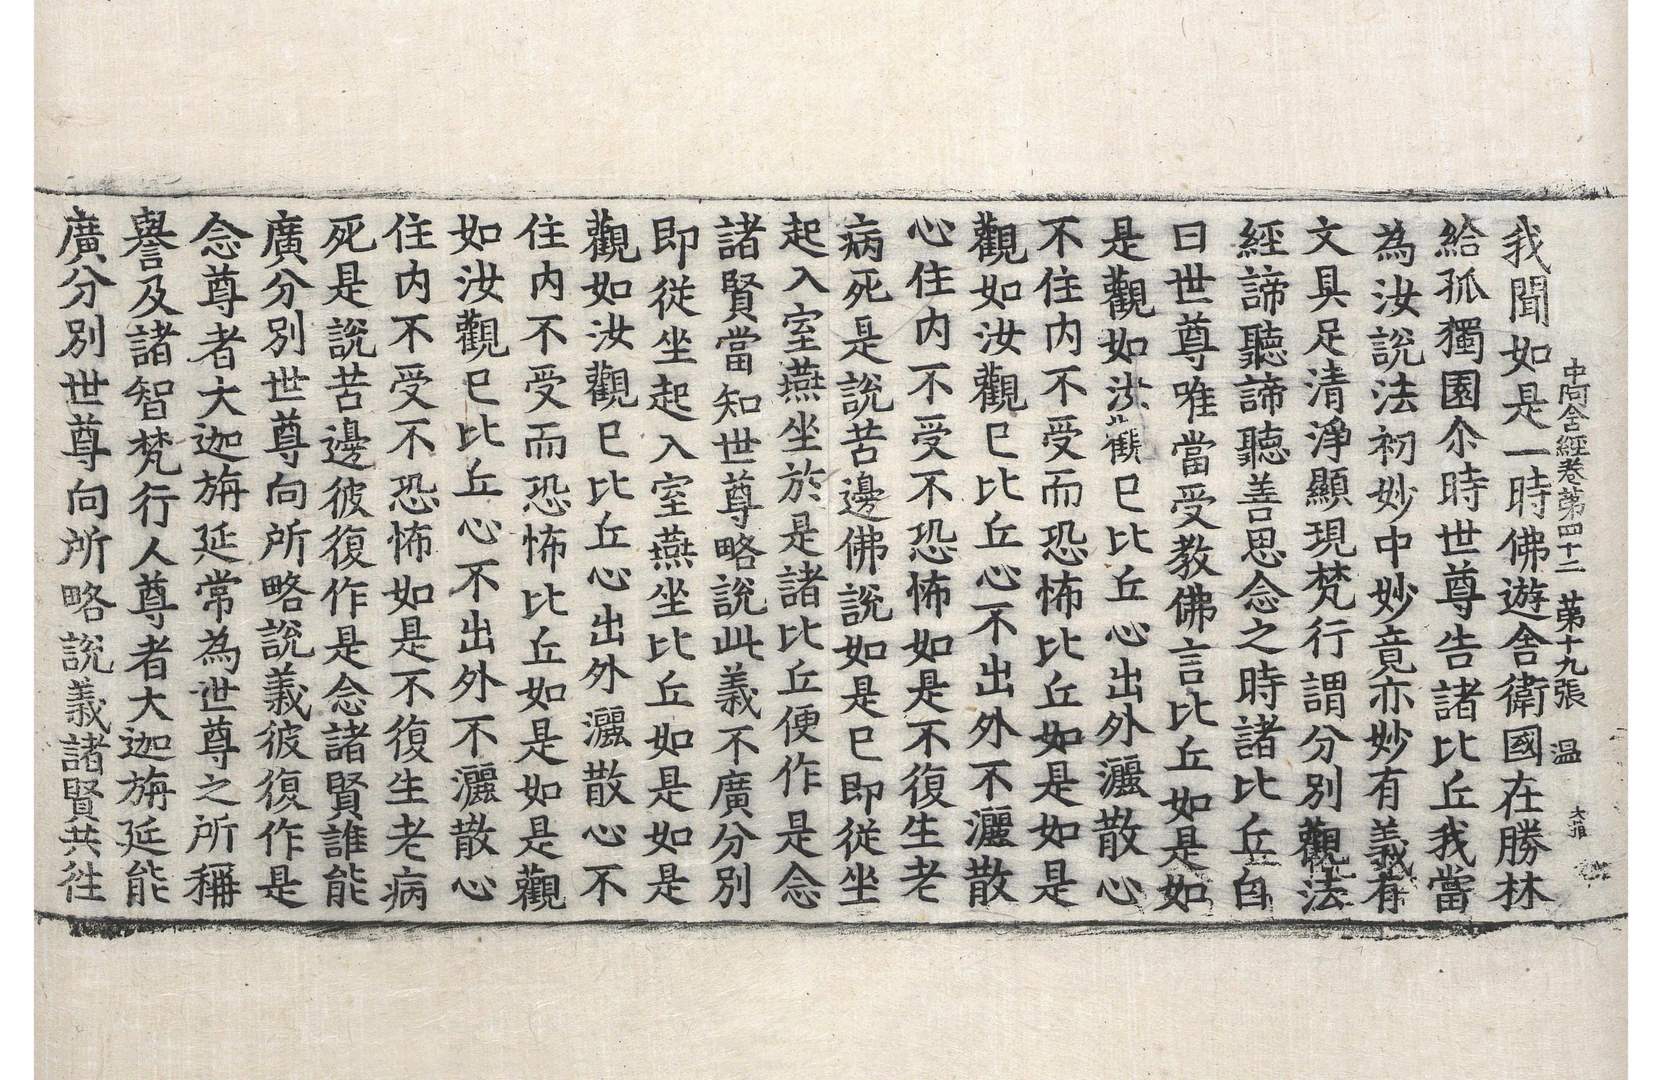 中阿含經卷第四十二 第十九張 温
我聞如是一時佛遊舍衛國在勝林
給孤獨園尒時世尊告諸比丘我當
為汝說法初妙中妙竟亦妙有義有
文具足清淨顯現梵行謂分別觀法
經諦聽諦聽善思念之時諸比丘白
曰世尊唯當受教佛言比丘如是如
是觀如汝觀已比丘心出外灑散心
不住内不受而恐怖比丘如是如是
觀如汝觀已比丘心不出外不灑散
心住内不受不恐怖如是不復生老
病死是說苦邊佛說如是已即従坐
起入室燕坐於是諸比丘便作是念
諸賢當知世尊略說此義不廣分別
即従坐起入室燕坐比丘如是如是
觀如汝觀已比丘心出外灑散心不
住内不受而恐怖比丘如是如是觀
如汝觀已比丘心不出外不灑散心
住内不受不恐怖如是不復生老病
死是說苦邊彼復作是念諸賢誰能
廣分別世尊向所略說義彼復作是
念尊者大迦旃延常為世尊之所稱
譽及諸智梵行人尊者大迦旃延能
廣分別世尊向所略說義諸賢共往